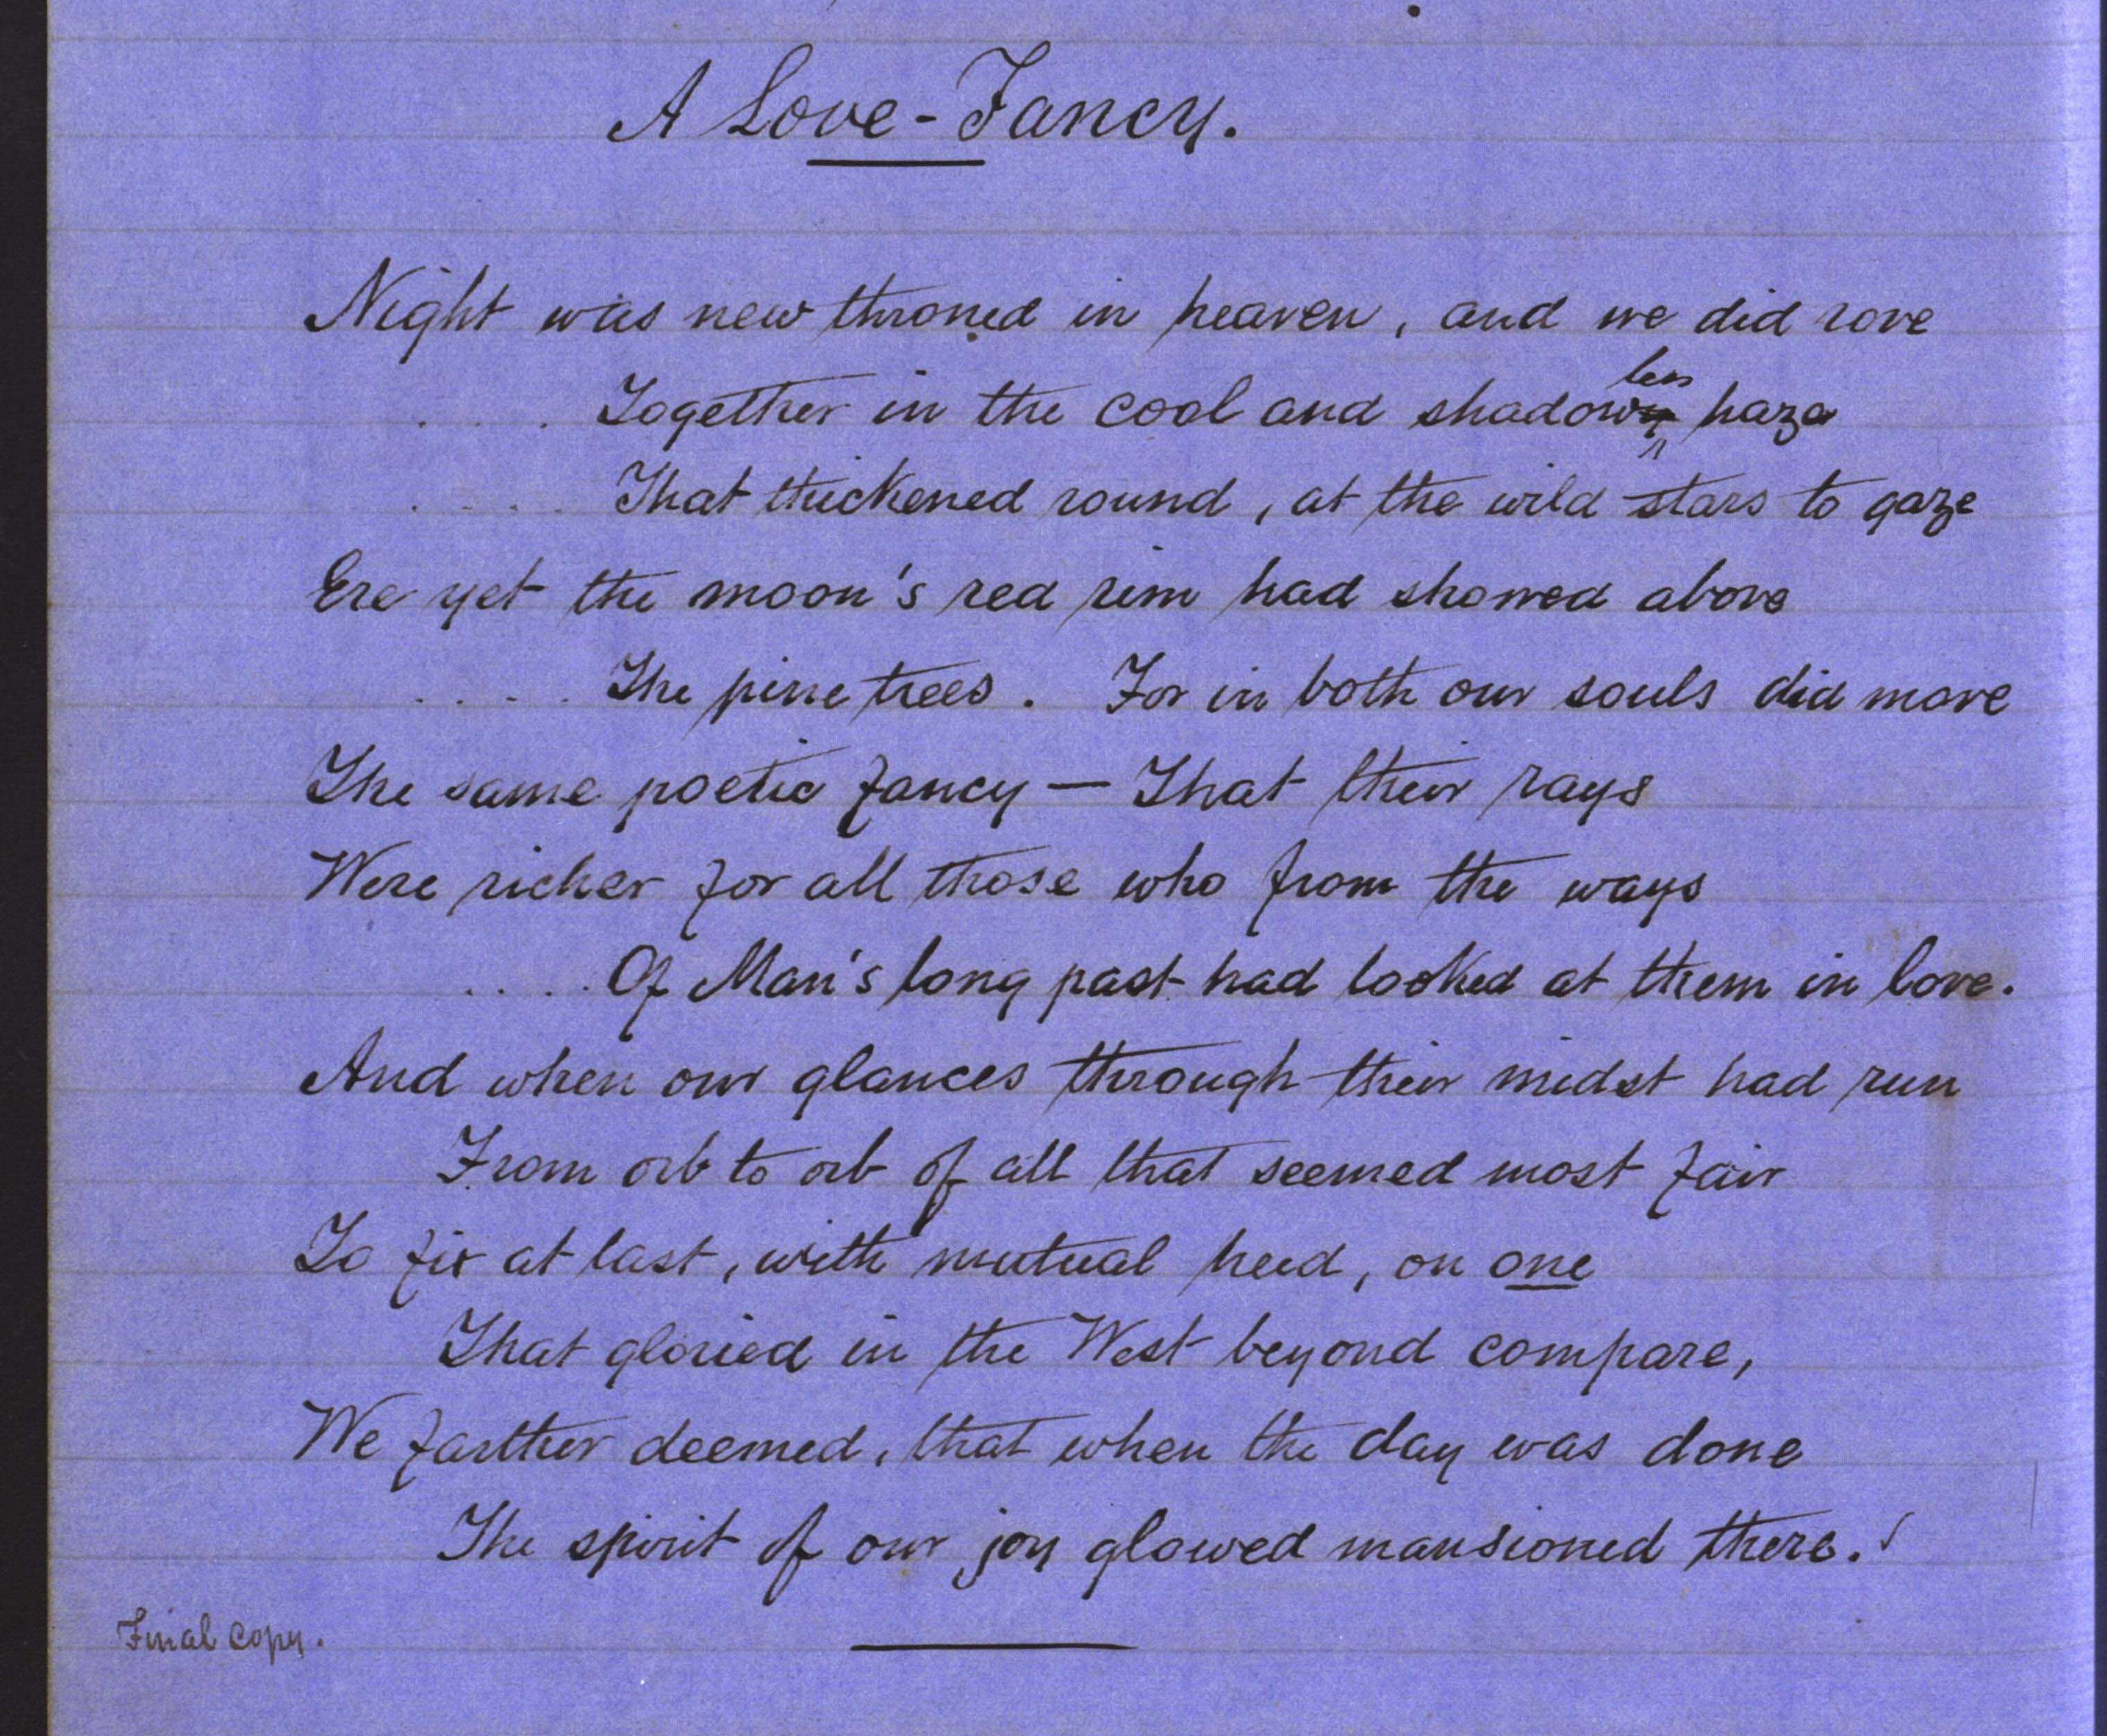 A Love-Fancy.
Night was new throned in heaven, and we did rove
. . . . Together in the cool and shadowless haze
. . . . That thickened round, at the wild stars to gaze
Ere yet the moon's red rim had showed above
. . . . The pine trees. For in both our souls did move
The same poetic fancy — That their rays
Were richer for all those who from the ways
. . . . Of Man's long past had looked at them in love.
And when our glances through their midst had run
From orb to orb of all that seemed most fair
To fix at last, with mutual heed, on one
That gloried in the West beyond compare,
We farther deemed, that when the day was done
The spirit of our joy glowed mansioned there.
Final copy.